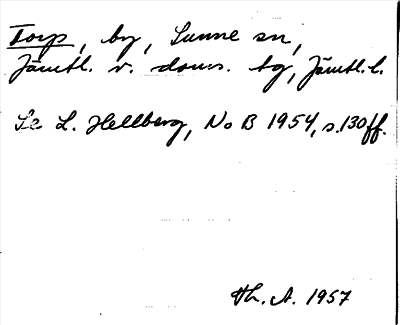 Torp, by, Sunne sn,
Jämtl. v. doms. tg, Jämtl. l.
Se L. Hellberg, NoB 1954, s. 130 ff.
Th. A. 1957